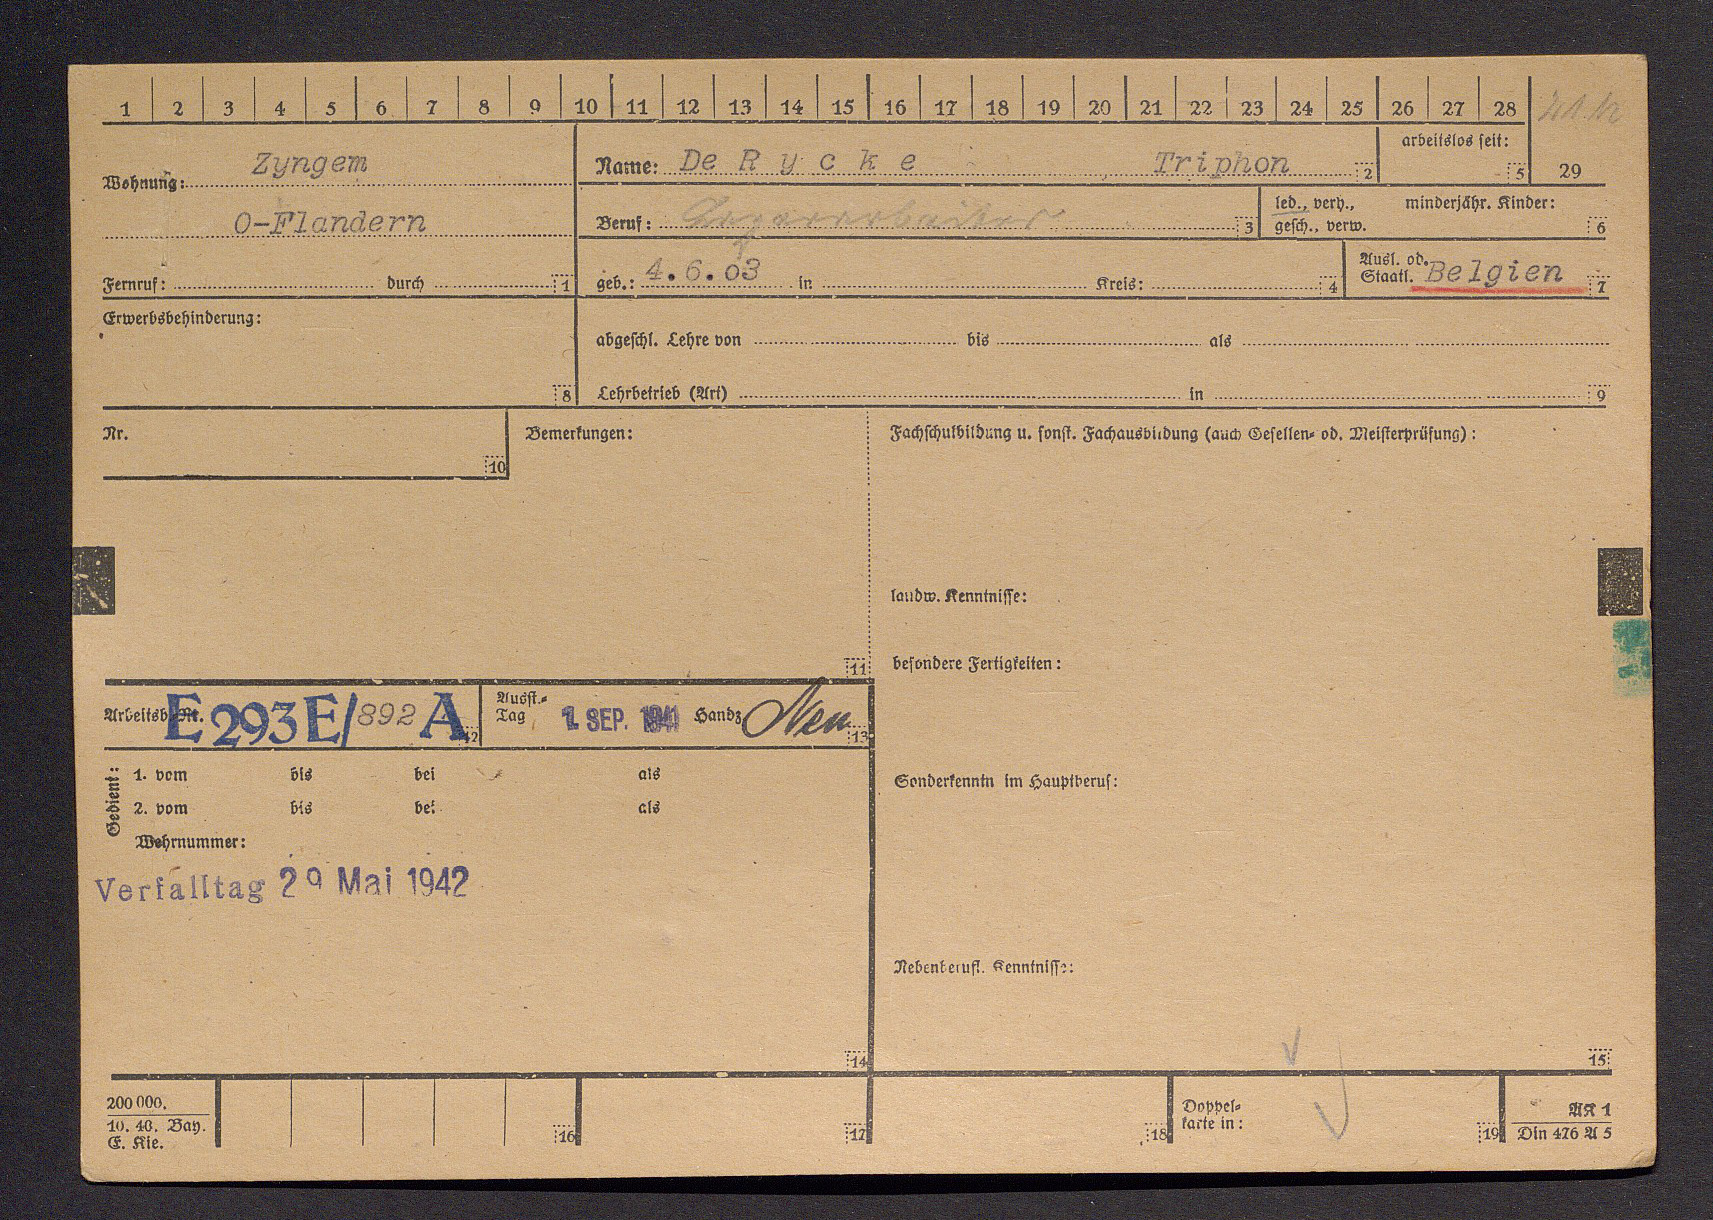 1 2 3 4 5 6 7 8 9 10 11 12 13 14 15 16 17 18 19 20 21 22 23 24 25 26 27 28
Wohnung: Zyngem
O-Flandern
Fernruf: durch 1
Name: De R y c k e Triphon 2
arbeitslos seit: 5
29
Beruf: Lagerarbeiter 3
led., verh., minderjähr. Kinder:
gesch., verw. 6
geb.: 4.6.03 in Kreis: 4
Ausl. od.
Staatl. Belgien 7
Erwerbsbehinderung:
8
abgeschl. Lehre von bis als
Lehrbetrieb (Art) in 9
Nr.
10
Bemerkungen:
11
Fachschulbildung u. sonst. Fachausbildung (auch Gesellen- od. Meisterprüfung):
landw. Kenntnisse:
besondere Fertigkeiten:
Arbeitsb.-Nr. E 293 E/892 A 12
Ausst.-
Tag 1. SEP. 1941 Handz 13
Gedient:
1. vom bis bei als
2. vom bis bei als
Wehrnummer:
Verfalltag 29 Mai 1942
14
Sonderkenntn im Hauptberuf:
Nebenberufl. Kenntnisse:
15
200 000.
10. 40. Bay.
E. Kie.
16
17
18
Doppel-
karte in:
19
AK 1
Din 476 A 5